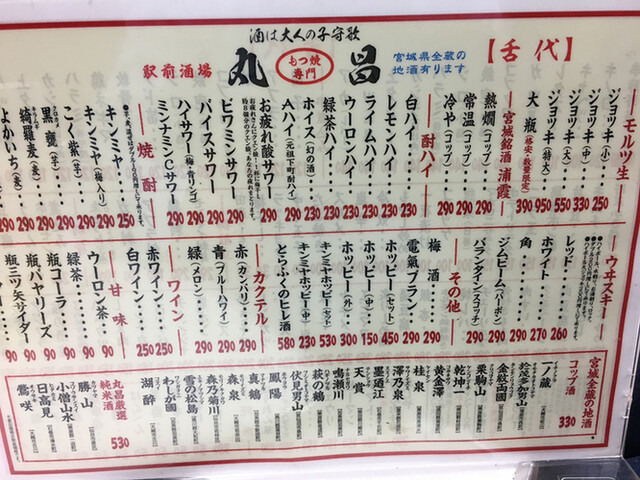 酒は大人の子守歌
駅前酒場
丸昌
もつ焼専門
宮城県全蔵の地酒有ります
【舌代】
モルツ生
ジョッキ(小) 250
ジョッキ(中) 330
ジョッキ(大) 550
ジョッキ(特大) 950
大瓶(格安・数量限定) 390
宮城銘酒 浦霞
熱燗(コップ) 290
常温(コップ) 290
冷や(コップ) 290
酎ハイ
白ハイ 230
レモンハイ 230
ライムハイ 230
ウーロンハイ 230
緑茶ハイ 230
ホイス(幻の酒)
Aハイ(元祖下町酎ハイ)
お疲れ酸サワー 290
ビワミンサワー 290
バイスサワー 290
ハイサワー(梅・青リンゴ) 290
ミンナミンCサワー 290
焼酎
キンミヤ 250
キンミヤ(梅入り) 290
こく紫(芋) 290
黒甕(芋) 290
綺羅麦(麦) 290
よかいち(麦) 290
ウヰスキー
レッド 260
ホワイト 270
角 290
ジムビーム(バーボン) 290
バランタイン(スコッチ) 290
その他
梅酒 290
電氣ブラン 290
ホッピー(セット) 450
ホッピー(中) 150
ホッピー(外) 300
キンミヤホッピー(セット) 530
キンミヤホッピー(中) 230
とらふくのヒレ酒 580
カクテル
赤(カンパリ) 290
青(ブルーハワイ) 290
緑(メロン) 290
ワイン
赤ワイン 250
白ワイン 250
甘味
ウーロン茶 90
緑茶 90
瓶コーラ 90
瓶バヤリーズ 90
瓶三ツ矢サイダー 90
宮城全蔵の地酒
コップ酒 330
一ノ蔵
於茂多加男山
金紋両國
栗駒山
乾坤一
黄金澤
桂泉
澤乃泉
墨廼江
天賞
鳴瀬川
萩の鶴
伏見男山
鳳陽
真鶴
森泉
森乃菊川
雪の松島
わしが國
湖酔
丸昌厳選純米酒 530
勝山
小僧山水
日高見
鶯咲